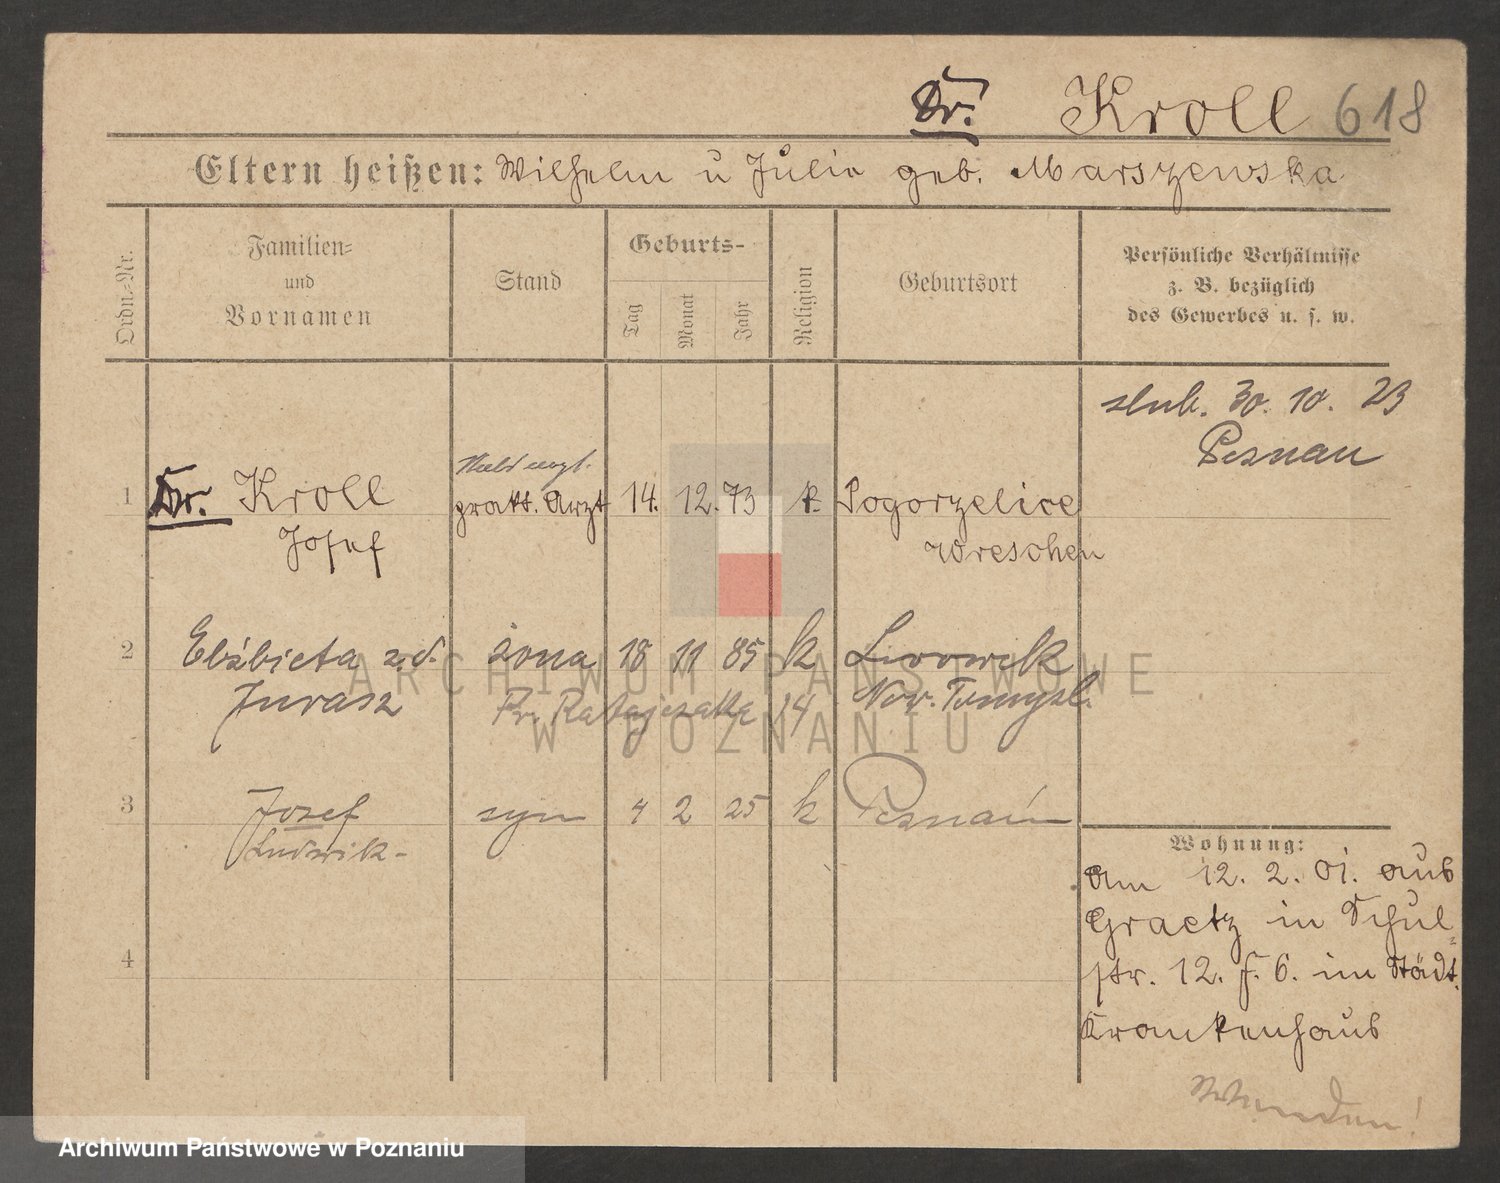 Dr. Kroll 618
Eltern heißen: Wilhelm u Julie geb. Marszewska
Ordn.-Nr.
Familien-
und
Vornamen
Stand
Geburts-
Tag
Monat
Jahr
Religion
Geburtsort
Persönliche Verhältnisse
z. B. bezüglich
des Gewerbes u. s. w.
slub. 30. 10. 23
Poznań
1 Dr. Kroll pratt. Arzt 14. 12. 73 k. Pogorzelice
Josef Wreschen
2 Elżbieta z.d. żona 18 11 85 k Lwowek
Jurasz Pr. Ratajczaka 14 Now. Tomysl.
3 Józef syn 4 2 25 k Poznań
Ludwik-
4
Wohnung:
Am 12. 2. 01. aus
Graetz in Schul-
str. 12. f. 6. im Städt.
Krankenhaus
ARCHIWUM PAŃSTWOWE
W POZNANIU
Archiwum Państwowe w Poznaniu